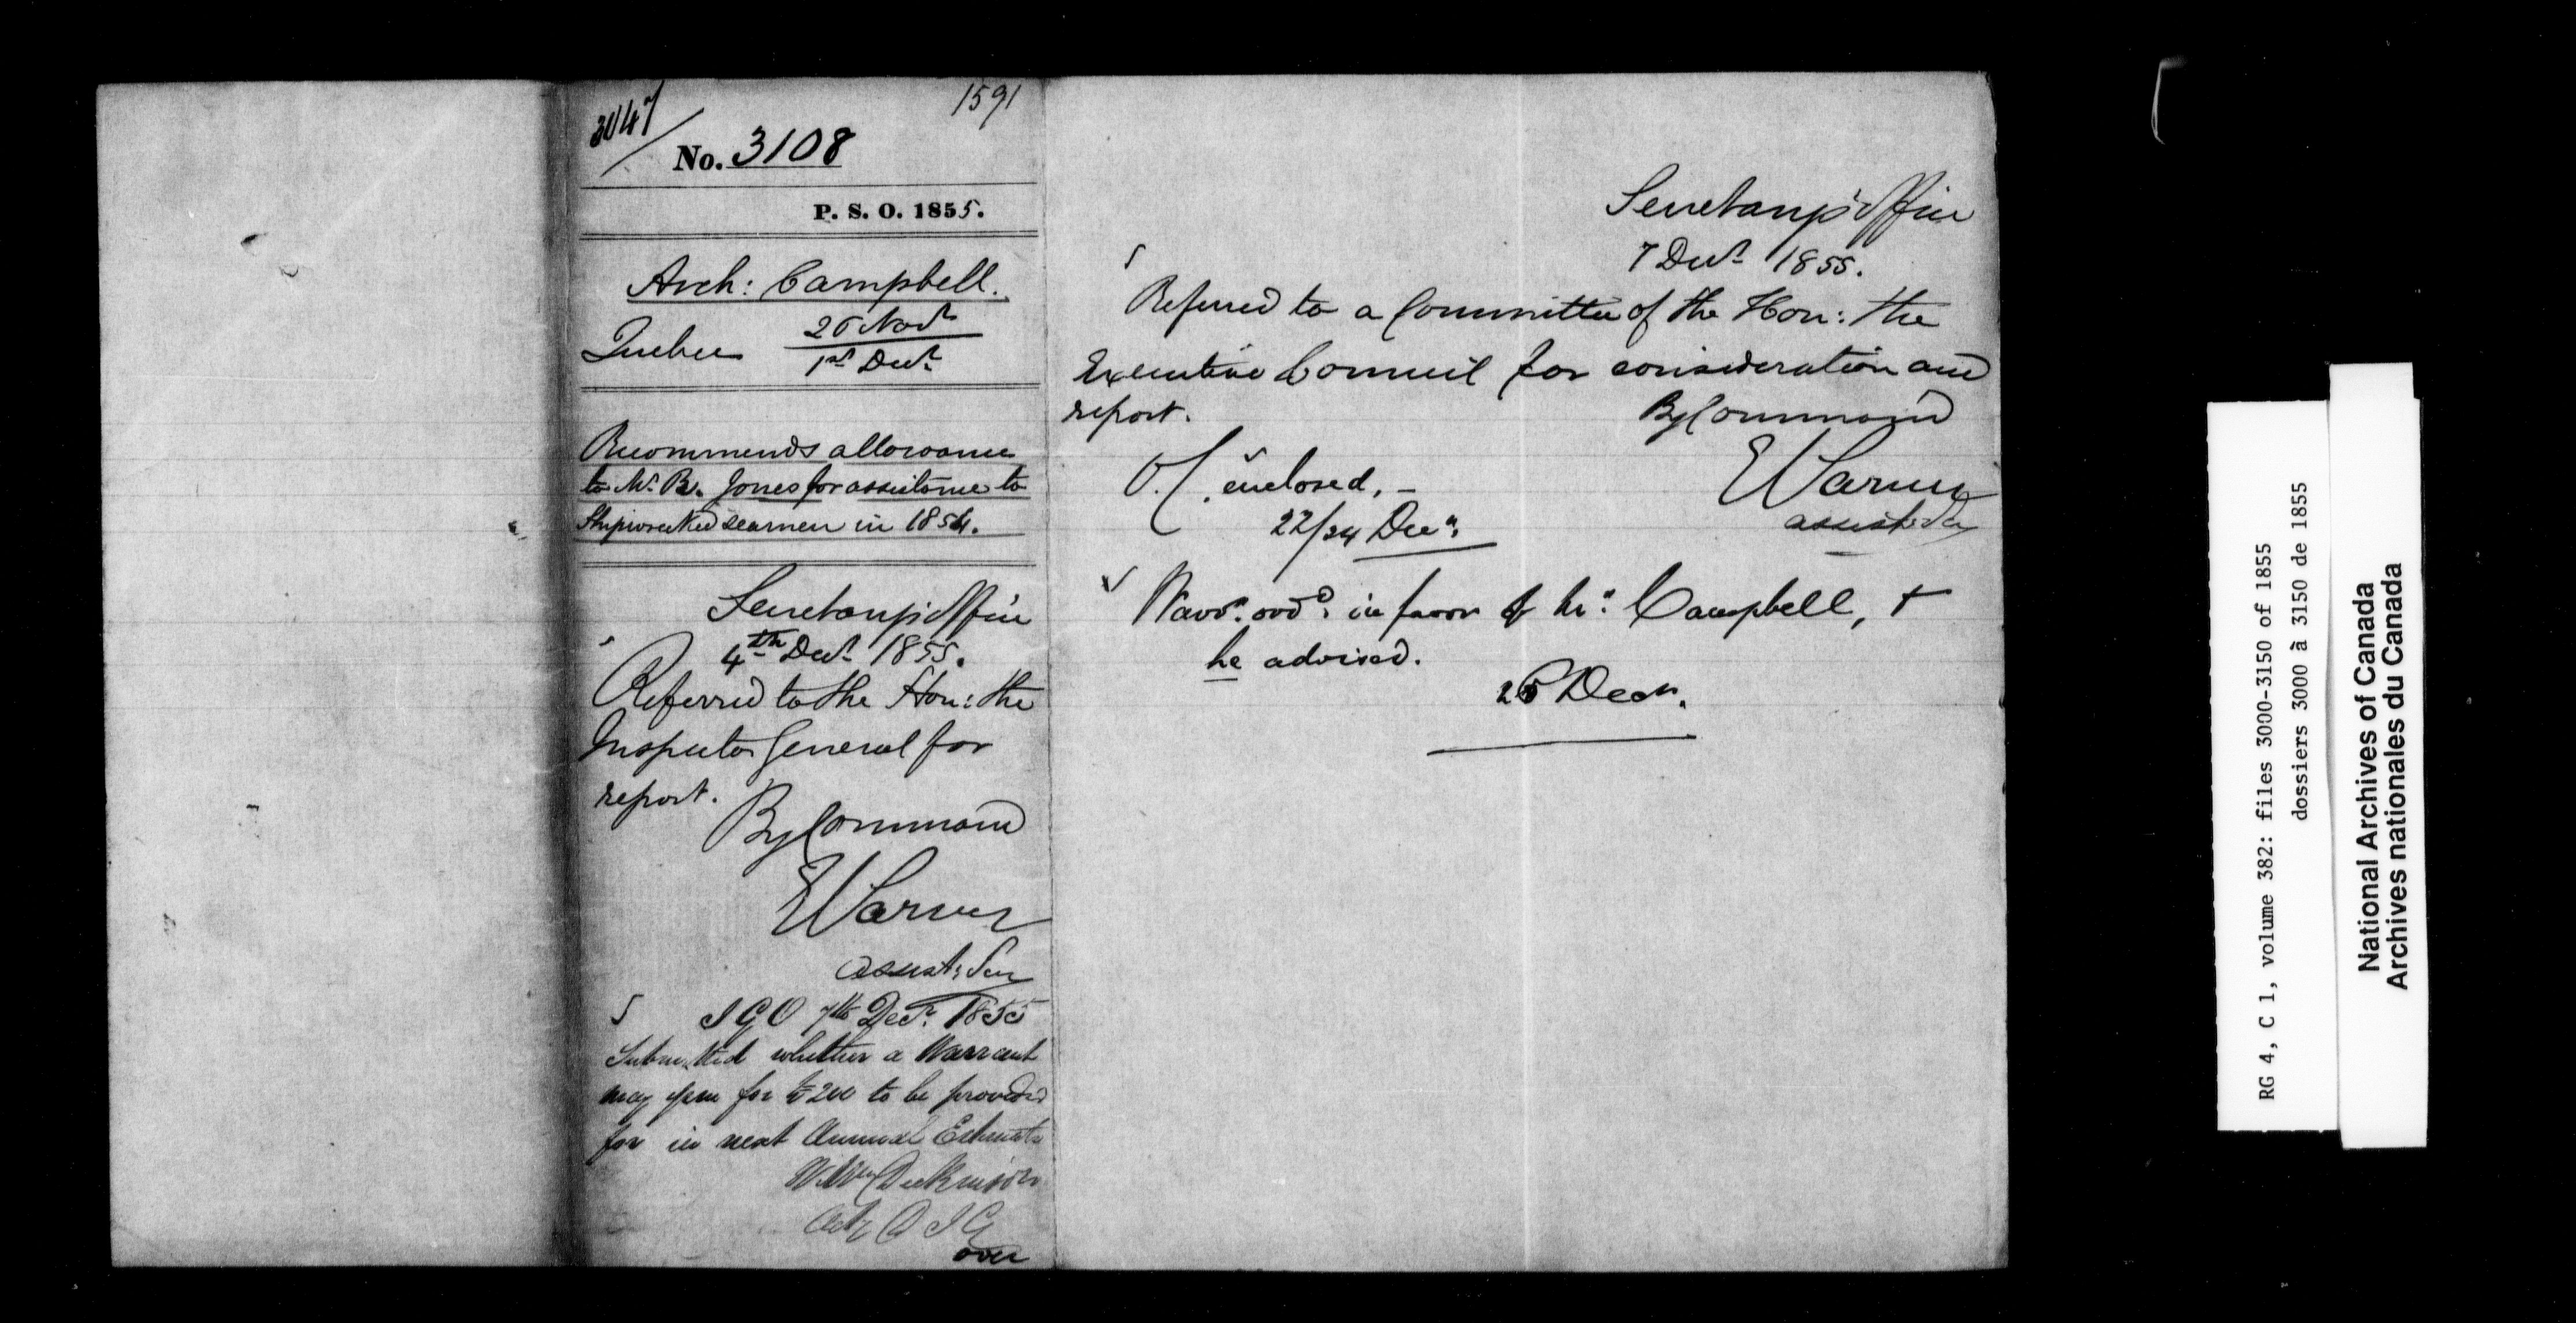 3047
1591
No. 3108
P. S. O. 1855.
Arch: Campbell.
Quebec 26 Novr
1st Decr
Recommends allowance
to Mr. B. Jones for assistance to
Shipwrecked seamen in 1854.
Secretary's Office
4th Decr 1855.
Referred to the Hon: the
Inspector General for
report.
By Command
Assist: Secy
I G O 7th Decr. 1855
Submitted whether a Warrant
may issue for £200 to be provided
for in next Annual Estimate
Wm Dickinson
Actg D I G
over
Secretary's Office
7 Decr 1855.
Referred to a Committee of the Hon: the
Executive Council for consideration and
report.
By Command
Assist: Secy
O.C. enclosed. –
22/24 Decr.
Warrt. ordd. in favor of Mr. Campbell, +
he advised.
Decr.
RG 4, C 1, volume 382: files 3000-3150 of 1855
dossiers 3000 à 3150 de 1855
National Archives of Canada
Archives nationales du Canada